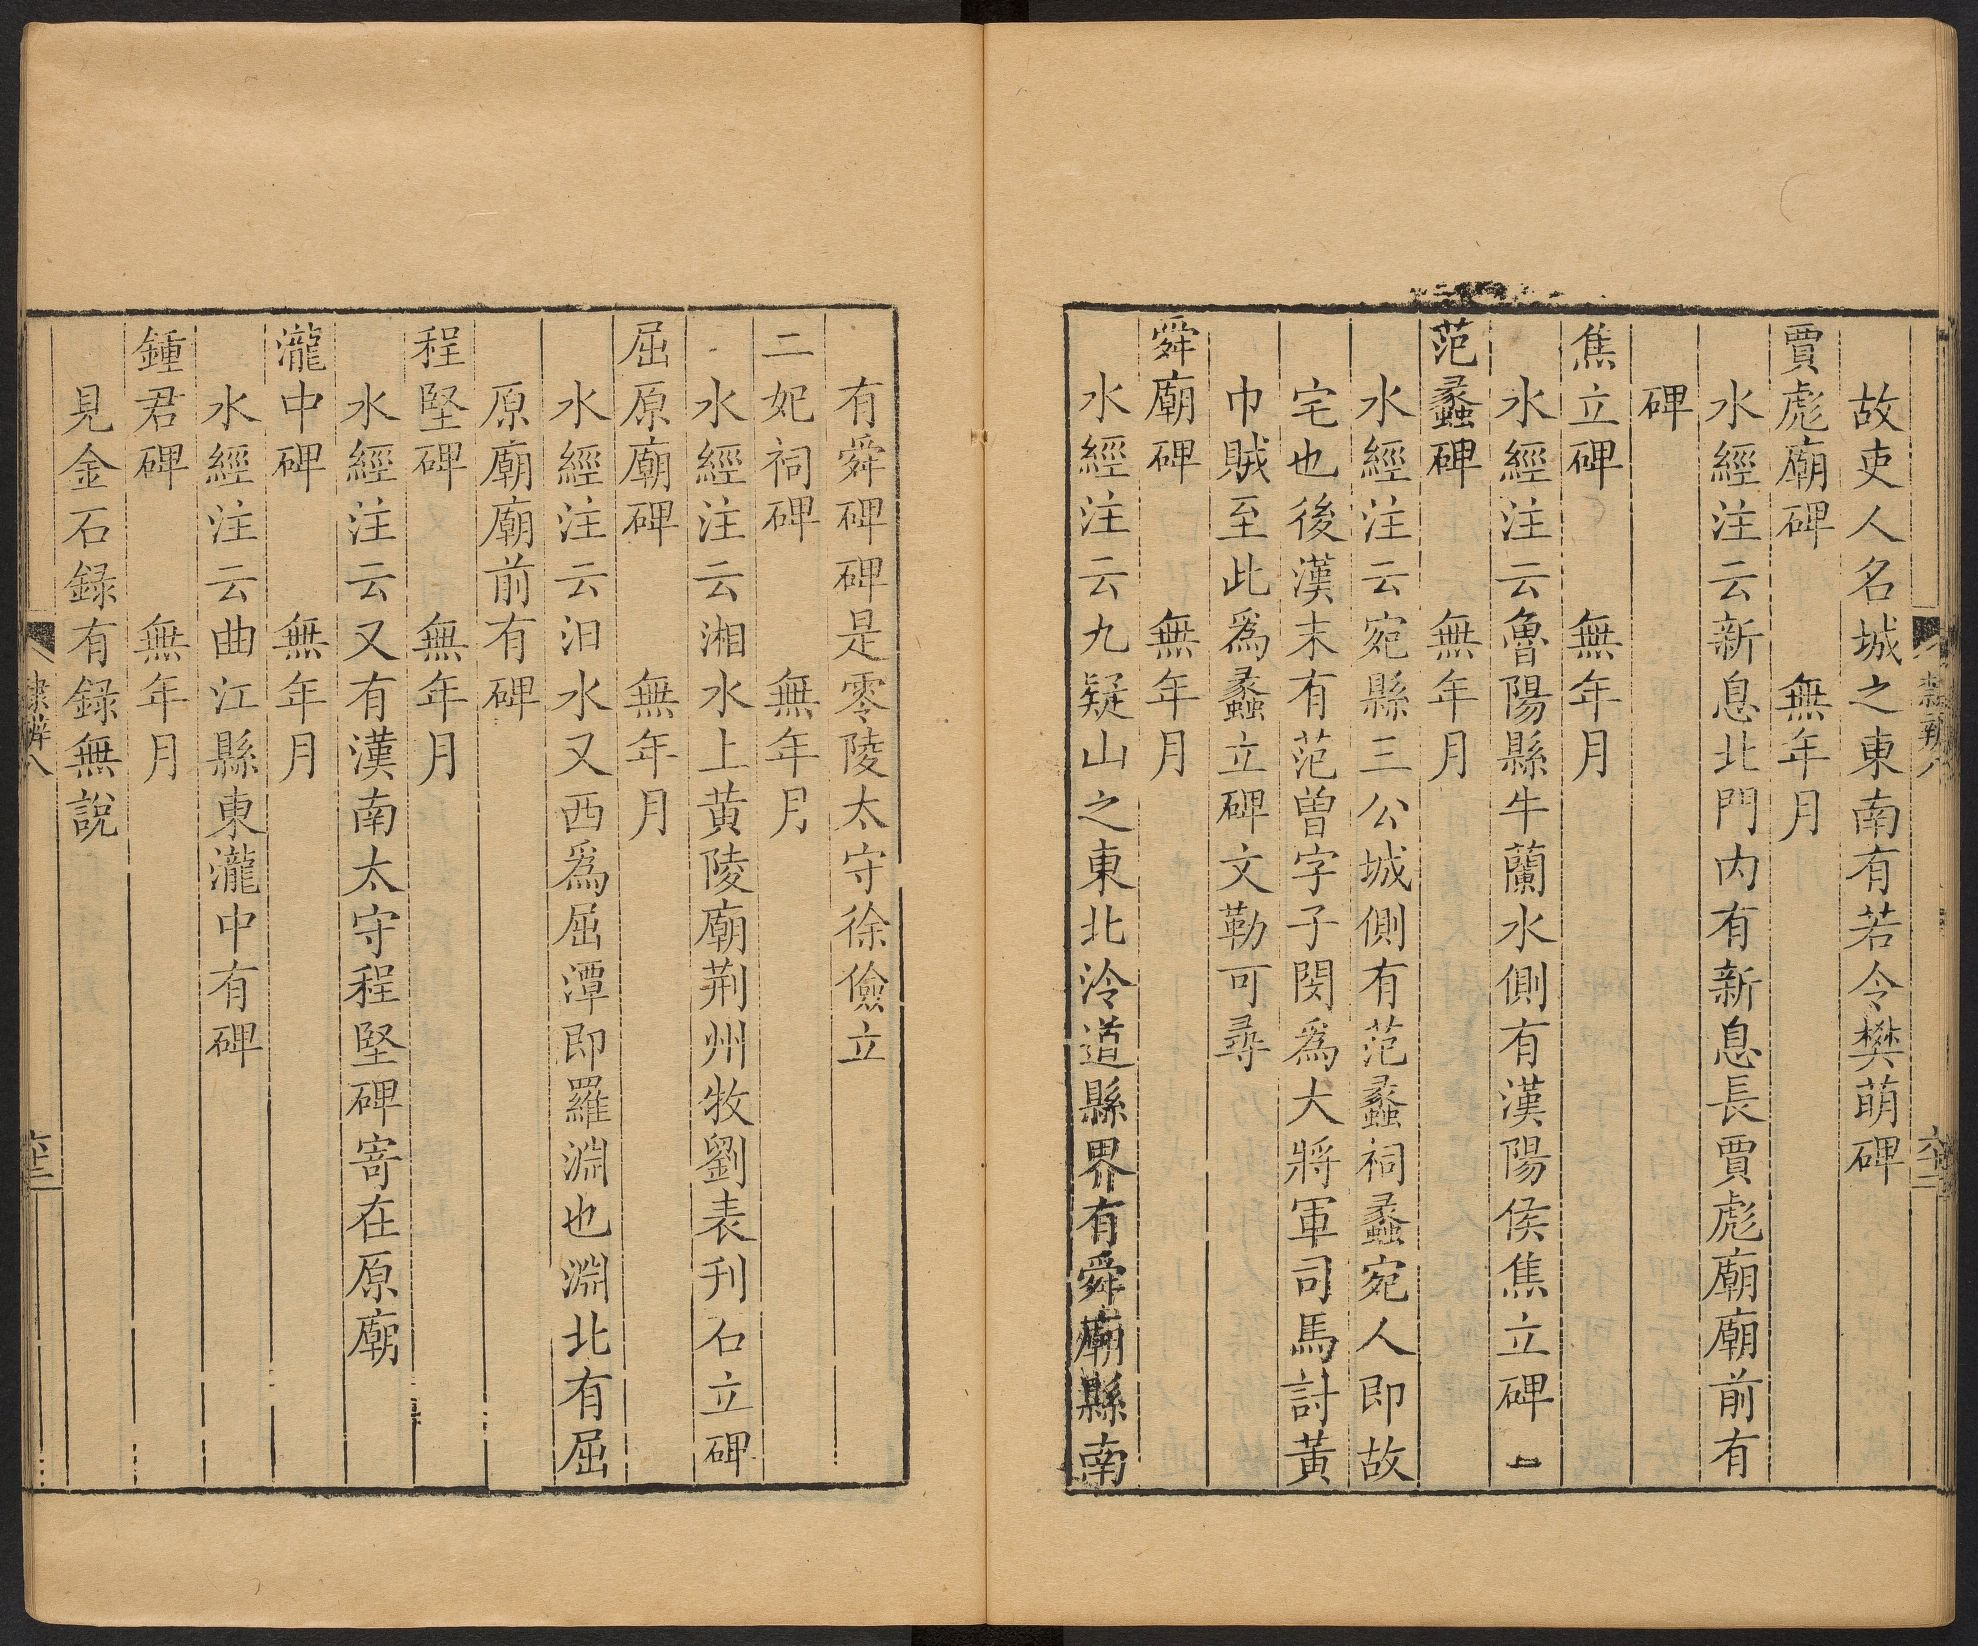 故吏人名城之東南有若令樊萌碑
賈彪廟碑 無年月
水經注云新息北門内有新息長賈彪廟廟前有
碑
焦立碑 無年月
水經注云魯陽縣牛蘭水側有漢陽侯焦立碑一
范蠡碑 無年月
水經注云宛縣三公城側有范蠡祠蠡宛人即故
宅也後漢末有范曾字子閔爲大將軍司馬討黃
巾賊至此爲蠡立碑文勒可尋
舜廟碑 無年月
水經注云九疑山之東北泠道縣界有舜廟縣南
有舜碑碑是零陵太守徐儉立
二妃祠碑 無年月
水經注云湘水上黃陵廟荆州牧劉表刊石立碑
屈原廟碑 無年月
水經注云汨水又西爲屈潭即羅淵也淵北有屈
原廟廟前有碑
程堅碑 無年月
水經注云又有漢南太守程堅碑寄在原廟
瀧中碑 無年月
水經注云曲江縣東瀧中有碑
鍾君碑 無年月
見金石録有録無說
隸辨八